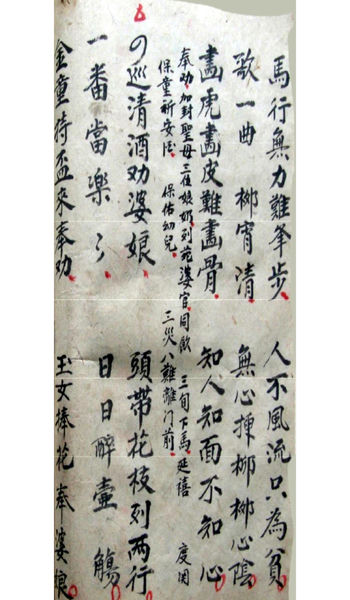 馬行無力難举步 人不風流只為貧
歌一曲 栁宵清 無心揀栁栁心陰
畵虎畵皮難畵骨 知人知面不知心
奉劝加封聖母三位娘奶列苑婆官同飲 三旬下馬延禧 度関
保童祈安 保佑幼兒 三災八難離门前
の巡清酒劝婆娘 頭帶花枝列两行
一番當楽々 日日醉壷觴
金童持盃來奉劝 玉女捧花奉婆娘